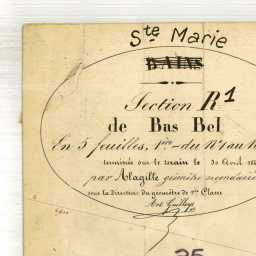 Ste Marie
BAINS
Section R1
de Bas Bel
En 5 feuilles, 1re du No 1 au
terminée sur le terrain le 30 Avril
par Alagille géomètre secondaire
sous la Direction du géomètre de 1re Classe
25